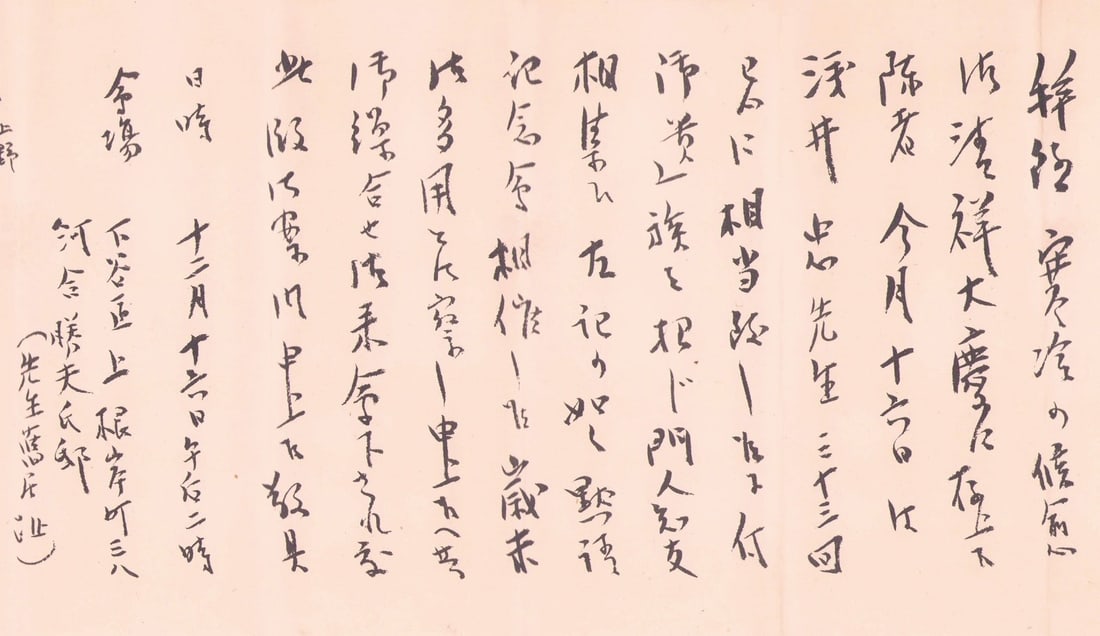 拝啓 寒冷の候愈〻
御清祥大慶に存上候
陳者 今月十六日は
浅井忠先生 三十三回
忌に相当致し候に付
御遺族を招じ 門人知友
相集ひ 左記の如く 黙祷
記念会相催し候 歳末
御多用とは察し申上候へ共
御繰合せ御来会下され度
此段御案内申上候 敬具
日時 十二月十六日午后二時
会場 下谷区上根岸町三八
河合勝夫氏邸
(先生旧居趾)
上野